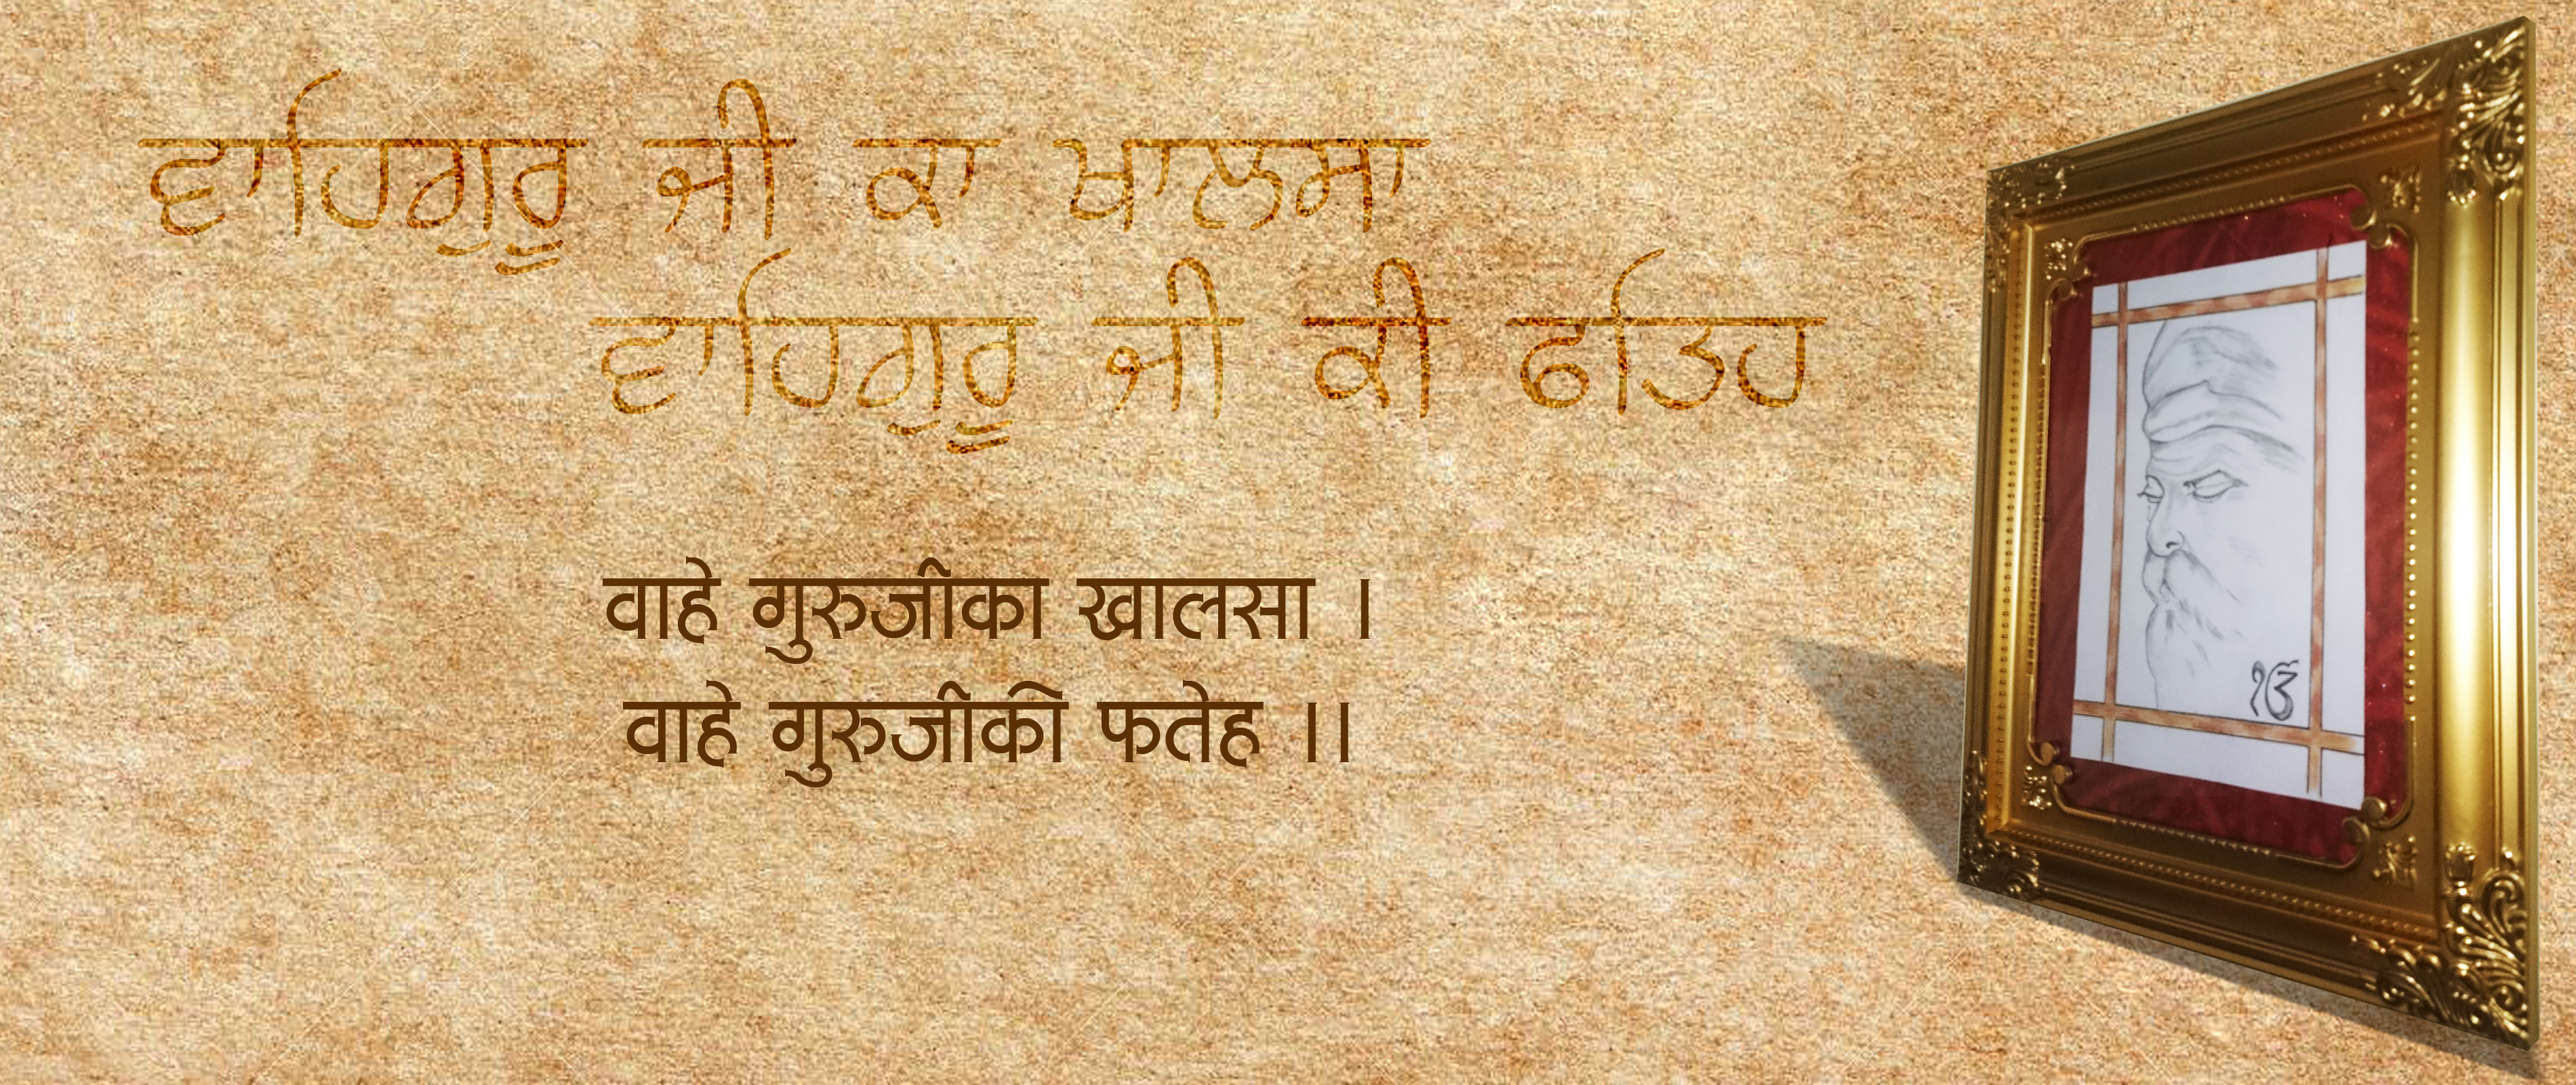 ਵਾਹਿਗੁਰੂ ਜੀ ਕਾ ਖਾਲਸਾ
ਵਾਹਿਗੁਰੂ ਜੀ ਕੀ ਫਤਿਹ
वाहे गुरुजीका खालसा ।
वाहे गुरुजीकी फतेह ।।
ੴ